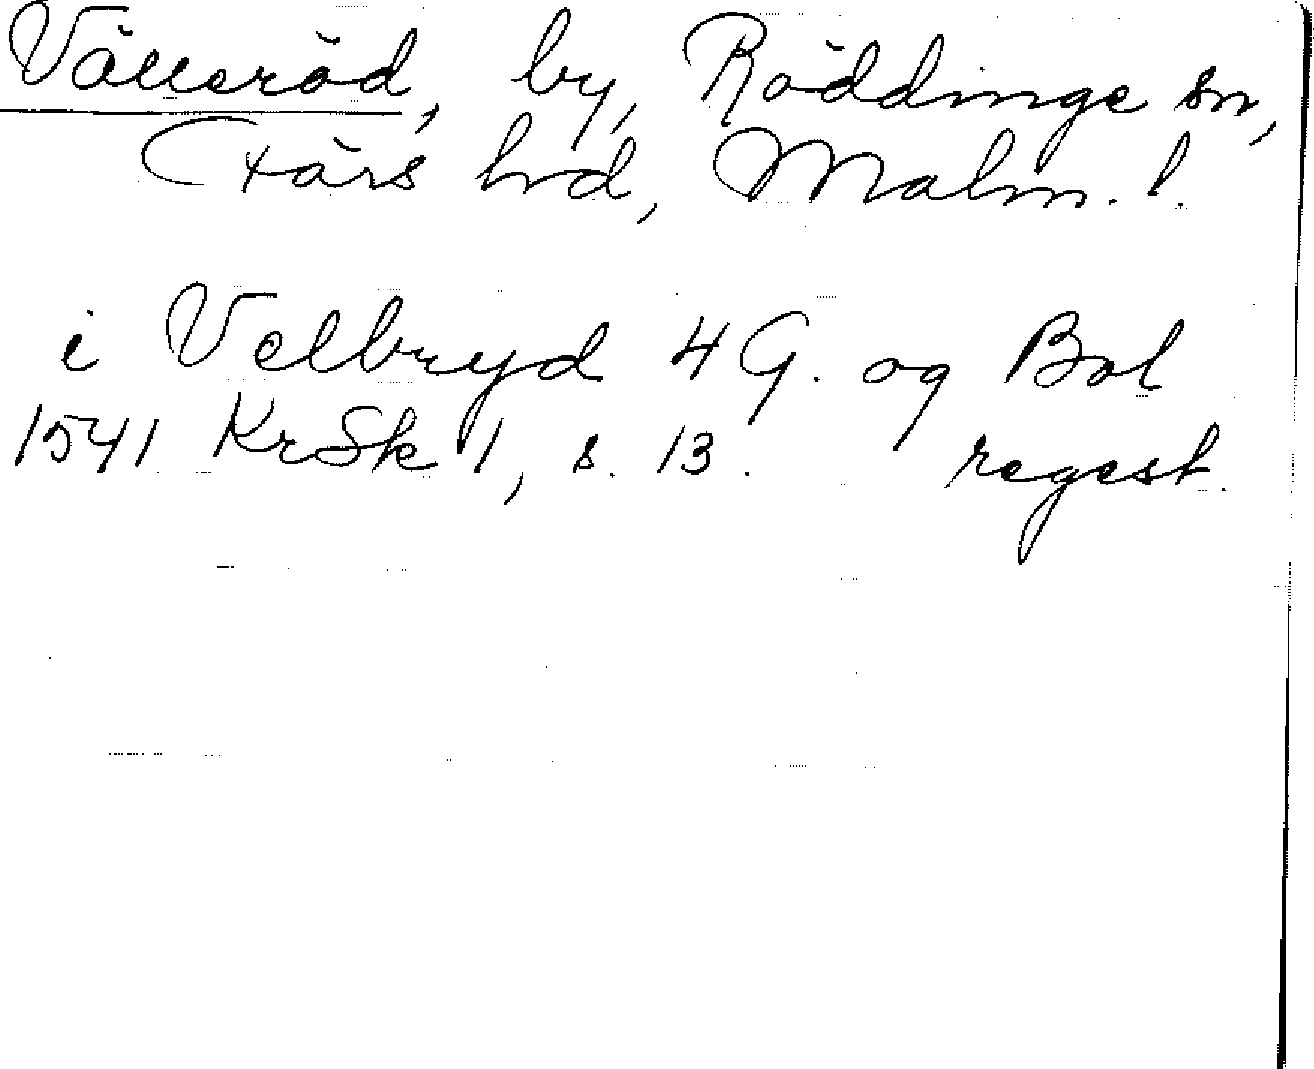 Välleröd, by, Röddinge sn,
Färs hd, Malm. l.
i Velbryd 4 G. og Bol
1541 KrSk 1, s. 13. regest.